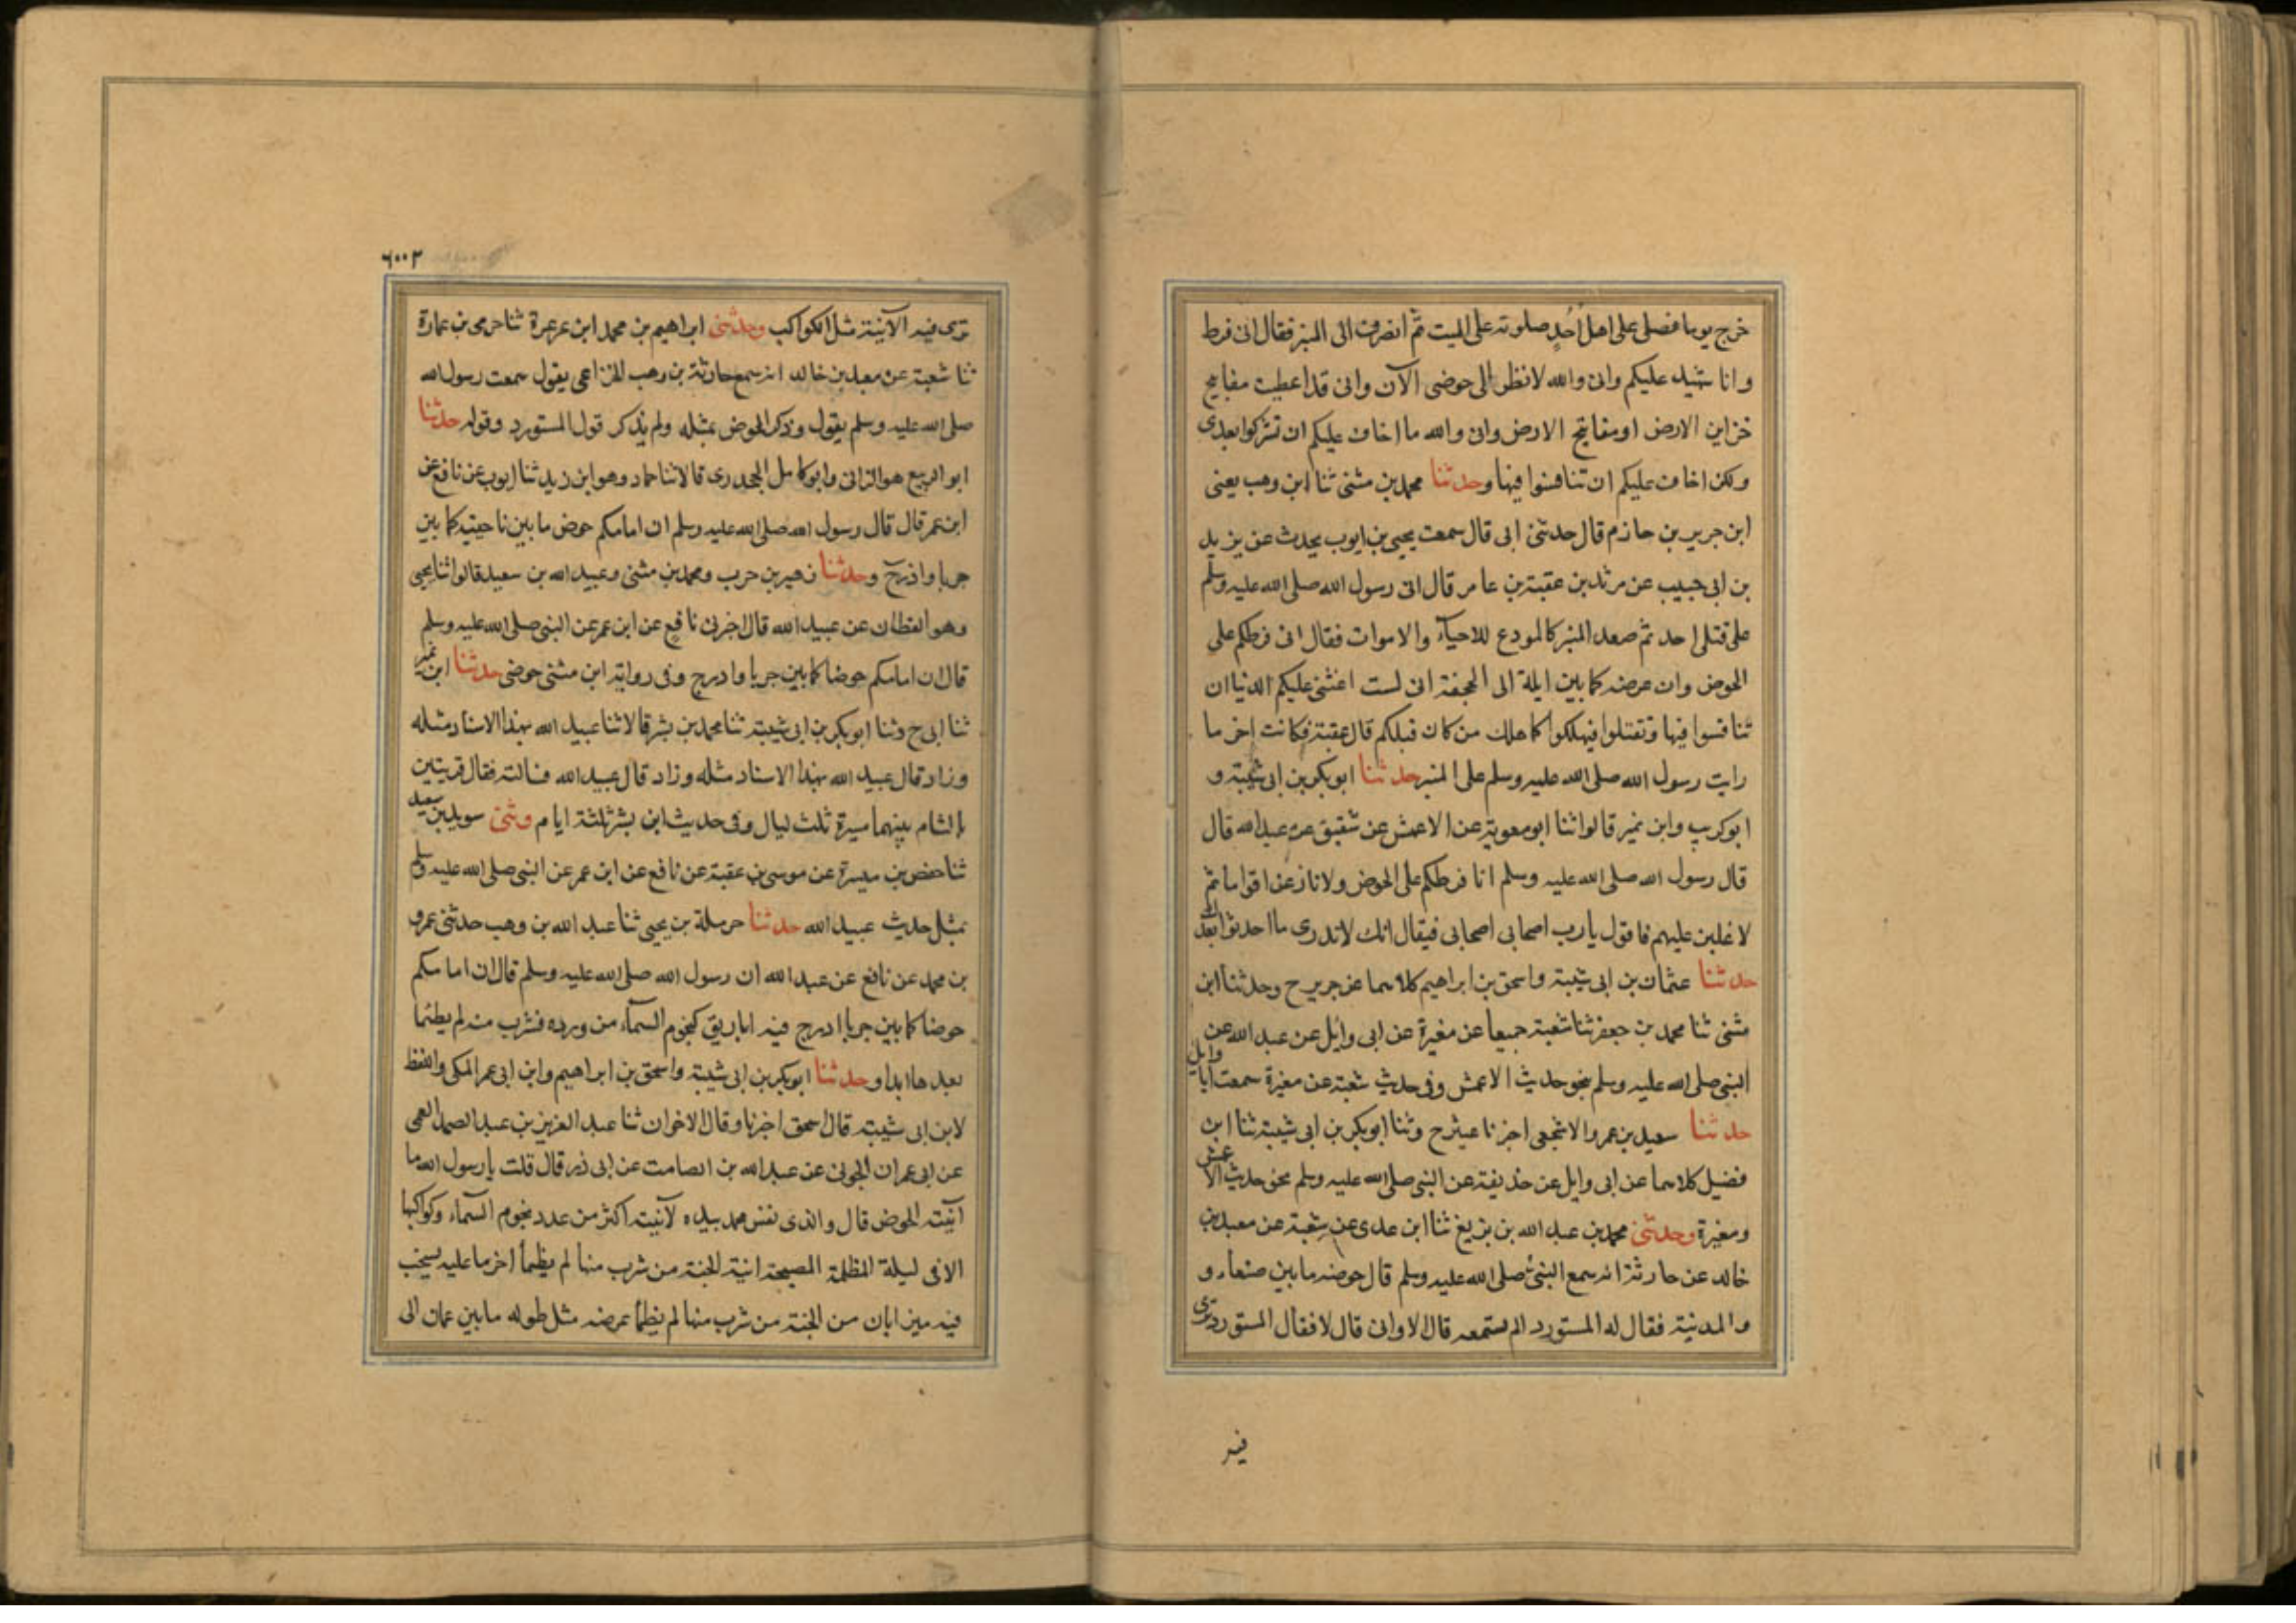 خرج يوما فصلى على اهل أحُدٍ صلوته على الميت ثم انصرف الى المنبر فقال انى فرط
وانا شهيد عليكم وانى والله لانظر الى حوضى الآن وانى قد اعطيت مفاتيح
خزاين الارض او مفاتيح الارض وانى والله ما اخاف عليكم ان تشركوا بعدى
ولكن اخاف عليكم ان تنافسوا فيها وحدثنا محمد بن مثنى ثنا ابن وهب يعنى
ابن جرير بن حازم قال حدثنى ابى قال سمعت يحيى بن ايوب يحدث عن يزيد
بن ابى حبيب عن مرثد بن عقبة بن عامر قال اتى رسول الله صلى الله عليه وسلم
على قتلى احد ثم صعد المنبر كالمودع للاحيآء والاموات فقال انى فرطكم على
الحوض وان عرضه كما بين ايلة الى الجحفة انى لست اخشى عليكم الدنيا ان
تنافسوا فيها وتقتلوا فيهلكوا كما هلك من كان قبلكم قال عقبة فكانت اخر ما
رايت رسول الله صلى الله عليه وسلم على المنبر حدثنا ابو بكر بن ابى شيبة و
ابو كريب وابن نمير قالوا ثنا ابو معوية عن الاعمش عن شقيق عن عبد الله قال
قال رسول الله صلى الله عليه وسلم انا فرطكم على الحوض ولانازعن اقواما ثم
لاغلبن عليهم فاقول يا رب اصحابى اصحابى فيقال انك لا تدرى ما احدثوا بعدك
حدثنا عثمان بن ابى شيبة واسحق بن ابراهيم كلاهما عن جرير ح وحدثنا ابن
مثنى ثنا محمد بن جعفر ثنا شعبة جميعا عن مغيرة عن ابى وايل عن عبد الله عن
النبى صلى الله عليه وسلم بنحو حديث الاعمش وفى حديث شعبة عن مغيرة سمعت ابا وايل
حدثنا سعيد بن عمرو الاشجعى اخبرنا عبثر ح وثنا ابو بكر بن ابى شيبة ثنا ابن
فضيل كلاهما عن ابى وايل عن حذيفة عن النبى صلى الله عليه وسلم نحو حديث الاعمش
ومغيرة وحدثنى محمد بن عبد الله بن بزيغ ثنا ابن عدى عن شعبة عن معبد بن
خالد عن حارثة انه سمع النبى صلى الله عليه وسلم قال حوضه ما بين صنعاء و
والمدنية فقال له المستورد الم تستمعه قال الاوانى قال لا فقال المستورد ترى
فيه
٦٠٠٢
ترى فيه الآنية مثل الكواكب وحدثنى ابراهيم بن محمد ابن عرعرة ثنا حرمى بن عمارة
ثنا شعبة عن معبد بن خالد انه سمع حارثة بن وهب الخزاعى يقول سمعت رسول الله
صلى الله عليه وسلم يقول وذكر الحوض بمثله ولم يذكر قول المستورد وقوله حدثنا
ابو الربيع هو الزانى وابو كامل الجحدرى قالا ثنا حماد وهو ابن زيد ثنا ايوب عن نافع عن
ابن عمر قال قال رسول الله صلى الله عليه وسلم ان امامكم حوض ما بين ناحيتيه كما بين
جربا واذرح وحدثنا زهير بن حرب ومحمد بن مثنى وعبيد الله بن سعيد قالوا ثنا يحيى
وهو القطان عن عبيد الله قال اخبرنى نافع عن ابن عمر عن النبى صلى الله عليه وسلم
قال ان امامكم حوضا كما بين جربا وادرج وفى رواية ابن مثنى حوضى حدثنا ابن نمير
ثنا ابى ح وثنا ابو بكر بن ابى شيبة ثنا محمد بن بشر قالا ثنا عبيد الله بهذا الاسناد مثله
وزاد قال عبيد الله بهذا الاسناد مثله وزاد قال عبيد الله فسالته فقال قريتين
بالشام بينهما مسيرة ثلث ليال وفى حديث ابن بشر ثلثة ايام وثنى سويد بن سعيد
ثنا حفص بن ميسرة عن موسى بن عقبة عن نافع عن ابن عمر عن النبى صلى الله عليه وسلم
بمثل حديث عبيد الله حدثنا حرملة بن يحيى ثنا عبد الله بن وهب حدثنى عمرو
بن محمد عن نافع عن عبد الله ان رسول الله صلى الله عليه وسلم قال ان امامكم
حوضا كما بين جربا ادرج فيه اباريق كنجوم السمآء من ورده فشرب منه لم يظئما
بعدها ابدا وحدثنا ابو بكر بن ابى شيبة واسحق بن ابراهيم وابن ابى عمر المكى واللفظ
لابن ابى شيبة قال اسحق اخبرنا وقال الاخران ثنا عبد العزيز بن عبد الصمد العمى
عن ابى عمران الجونى عن عبد الله بن الصامت عن ابى ذر قال قلت يا رسول الله ما
آنيت الحوض قال والذى نفس محمد بيده لآنيته اكثر من عدد نجوم السمآء وكواكبها
الا فى ليلة المظلمة المصبحة انية الجنة من شرب منها لم يظمأ اخر ما عليه يسخب
فيه ميزابان من الجنة من شرب منها لم يظمأ عرضه مثل طوله ما بين عمان الى